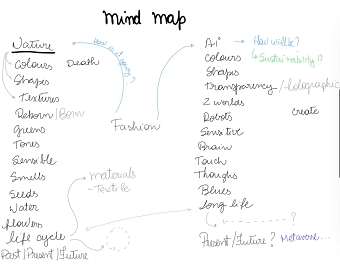 mind map
Nature
Colours
Death
Shapes
Textures
Reborn / Born
Greens
Tones
Sensible
Smells
Seeds
Water
flowers
life cycle
Past / Present / Future
How is it going?
Fashion
materials
- Textile
A.i
How will be?
Colours
Sustainability
Shapes
Transparency / holographic
2 worlds
create
Robots
Sensitive
Brain
Touch
Thoughs
Blues
long life
?
Present / Future ?
Metaverse...